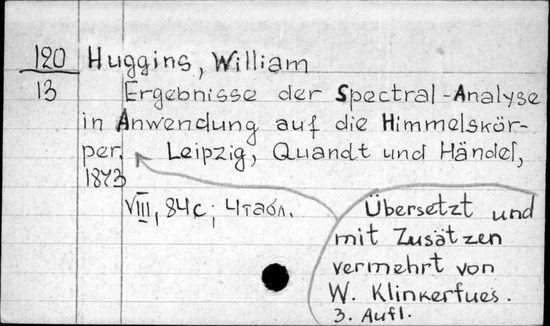 120 Huggins, William
13 Ergebnisse der Spectral-Analyse
in Anwendung auf die Himmelskör-
per. Leipzig, Quandt und Händel,
1873
VIII, 84c; 4табл.
Übersetzt und
mit Zusätzen
vermehrt von
W. Klinkerfues.
3. Aufl.